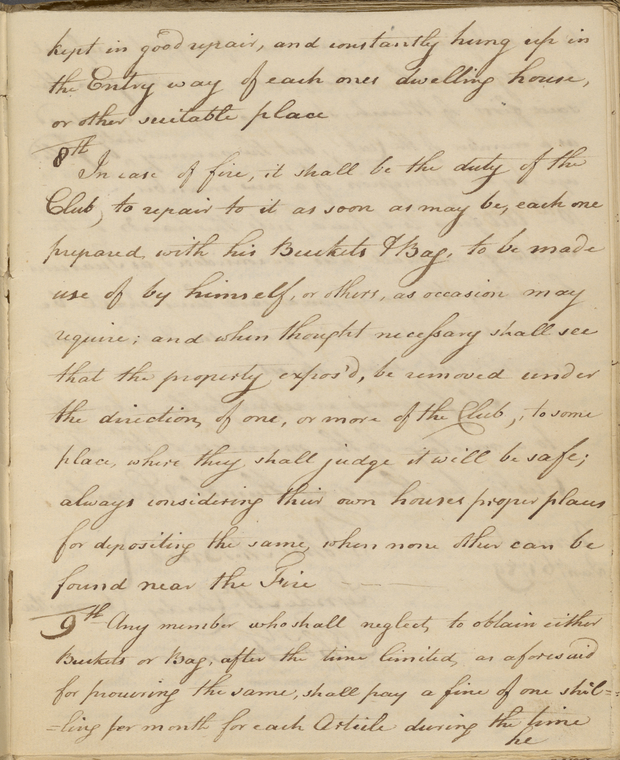 kept in good repair, and constantly hung up in
the Entry way of each ones dwelling house,
or other suitable place
8th
In case of fire, it shall be the duty of the
Club, to repair to it as soon as may be, each one
prepared with his Buckets & Bag, to be made
use of by himself, or others, as occasion may
require; and when thought necessary shall see
that the property expos'd, be removed under
the direction, of one, or more of the Club, to some
place, where they shall judge it will be safe;
always considering their own houses proper places
for depositing the same, when none other can be
found near the Fire
9th Any member who shall neglect, to obtain either
Buckets or Bag, after the time limited, as aforesaid
for procuring the same, shall pay a fine of one shil=
=ling per month for each Article during the time
he